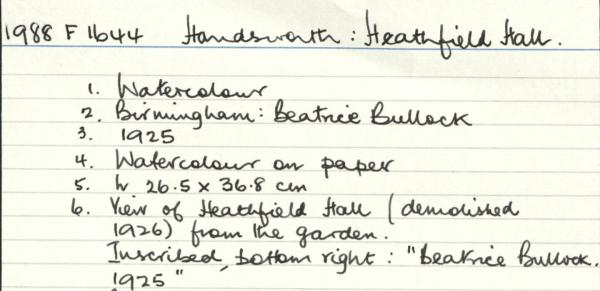 1988 F 1644 Handsworth : Heathfield Hall.
1. Watercolour
2. Birmingham: Beatrice Bullock
3. 1925
4. Watercolour on paper
5. h 26.5 x 36.8 cm
6. View of Heathfield Hall (demolished
1926) from the garden.
Inscribed, bottom right : "Beatrice Bullock.
1925"